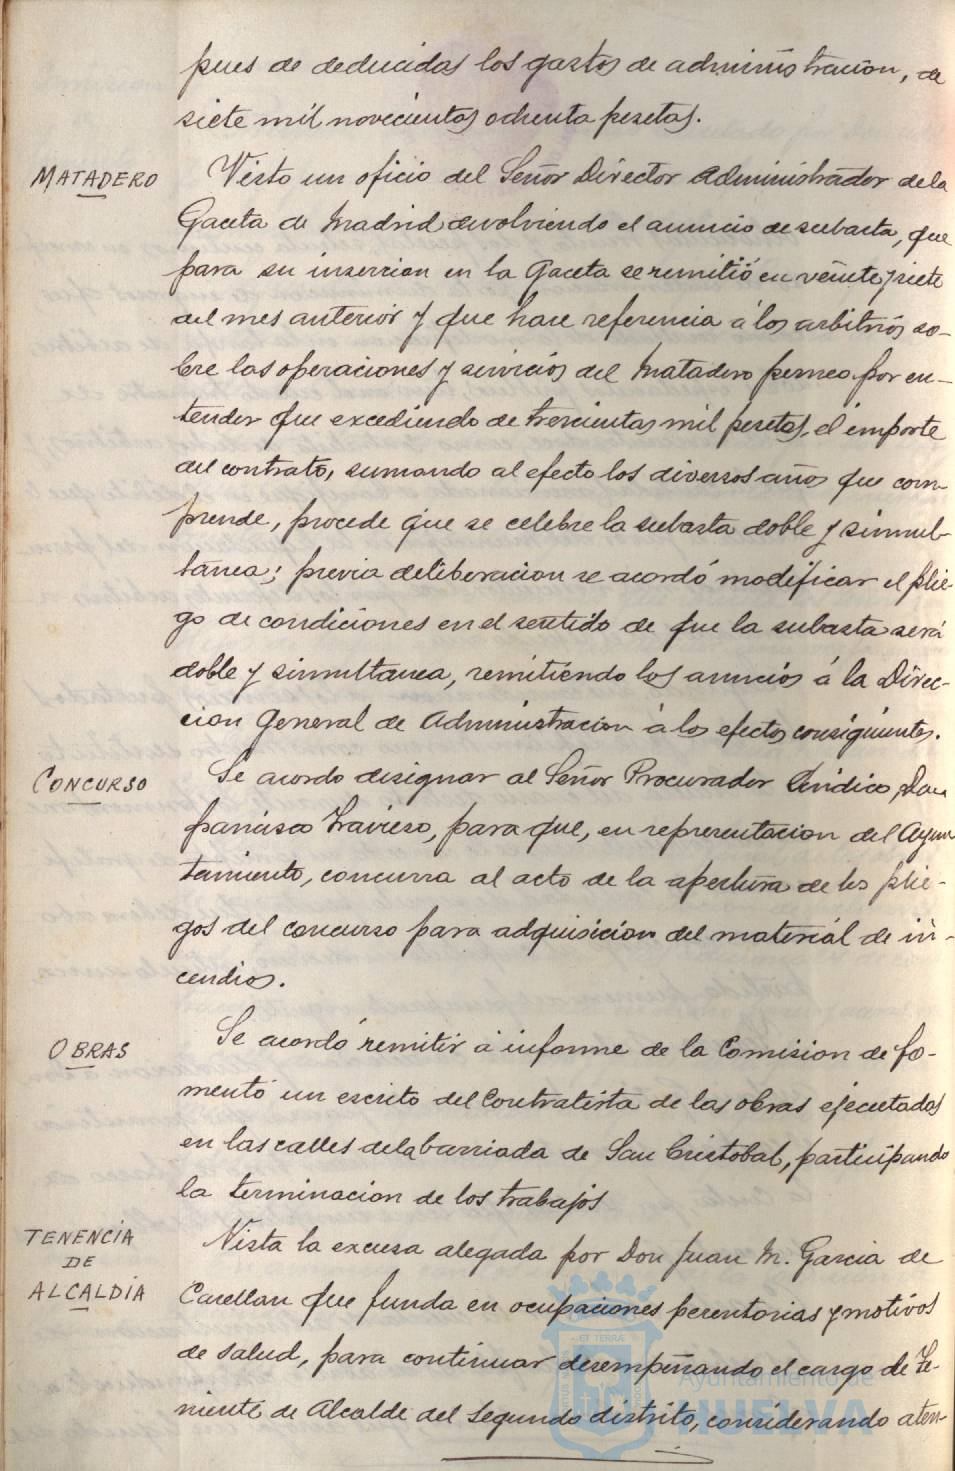 pues de deducidos los gastos de administracion, de
siete mil novecientas ochenta pesetas.
MATADERO
Visto un oficio del Señor Director Administrador de la
Gaceta de Madrid devolviendo el anuncio de subasta, que
para su insercion en la Gaceta se remitió en veinte y siete
del mes anterior y que hace referencia á los arbitrios so-
bre las operaciones y servicios del Matadero
por en-
tender que excediendo de trescientas mil pesetas, el importe
del contrato, sumando al efecto los diversos años que com-
prende, procede que se celebre la subasta doble y simul-
tanea; previa deliberacion se acordó modificar el plie-
go de condiciones en el sentido de que la subasta será
doble y simultanea, remitiendo los anuncios á la Direc-
cion General de Administracion á los efectos consiguientes.
CONCURSO
Se acordo designar al Señor Procurador Sindico, Don
Francisco Travieso, para que, en representacion del Ayun
tamiento, concurra al acto de la apertura de los plie-
gos del concurso para adquisicion del material de in-
cendios.
OBRAS
Se acordó remitir á informe de la Comision de fo-
mento un escrito del Contratista de las obras ejecutadas
en las calles de la barriada de San Cristobal, participando
la terminacion de los trabajos
TENENCIA
DE
ALCALDÍA
Vista la excusa alegada por Don Juan M. Garcia de
que funda en ocupaciones perentorias y motivos
de salud, para continuar desempeñando el cargo de Te-
niente de Alcalde del segundo distrito, considerando aten-
ET TERRÆ
Ayuntamiento de
HUELVA